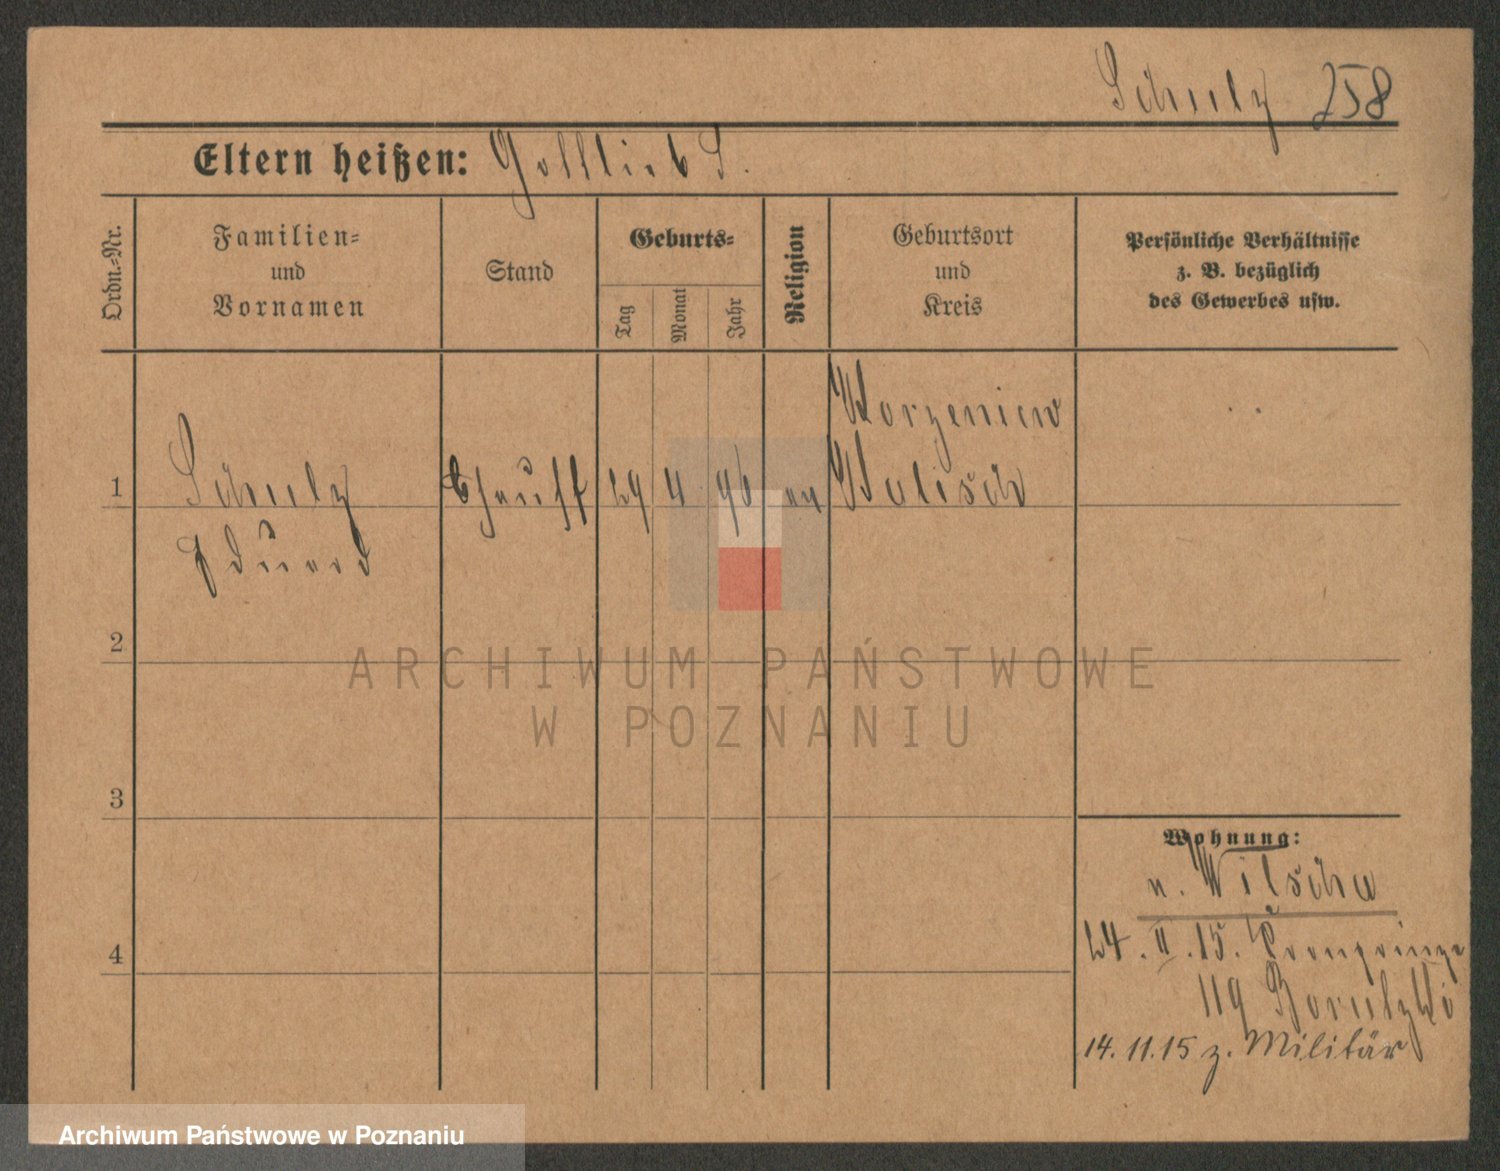 Schulz 258
Eltern heißen: Gottlieb S.
Ordn.-Nr.
Familien-
und
Vornamen
Stand
Geburts-
Tag
Monat
Jahr
Religion
Geburtsort
und
Kreis
Persönliche Verhältnisse
z. B. bezüglich
des Gewerbes usw.
1
Schulz
Eduard
Chauff
29 4 96 ev
Korzeniew
Kalisch
2
3
4
Wohnung:
n. Wilscha
24. II. 15. Kronprinze
119
14.11.15 z. Militär
ARCHIWUM PAŃSTWOWE
W POZNANIU
Archiwum Państwowe w Poznaniu